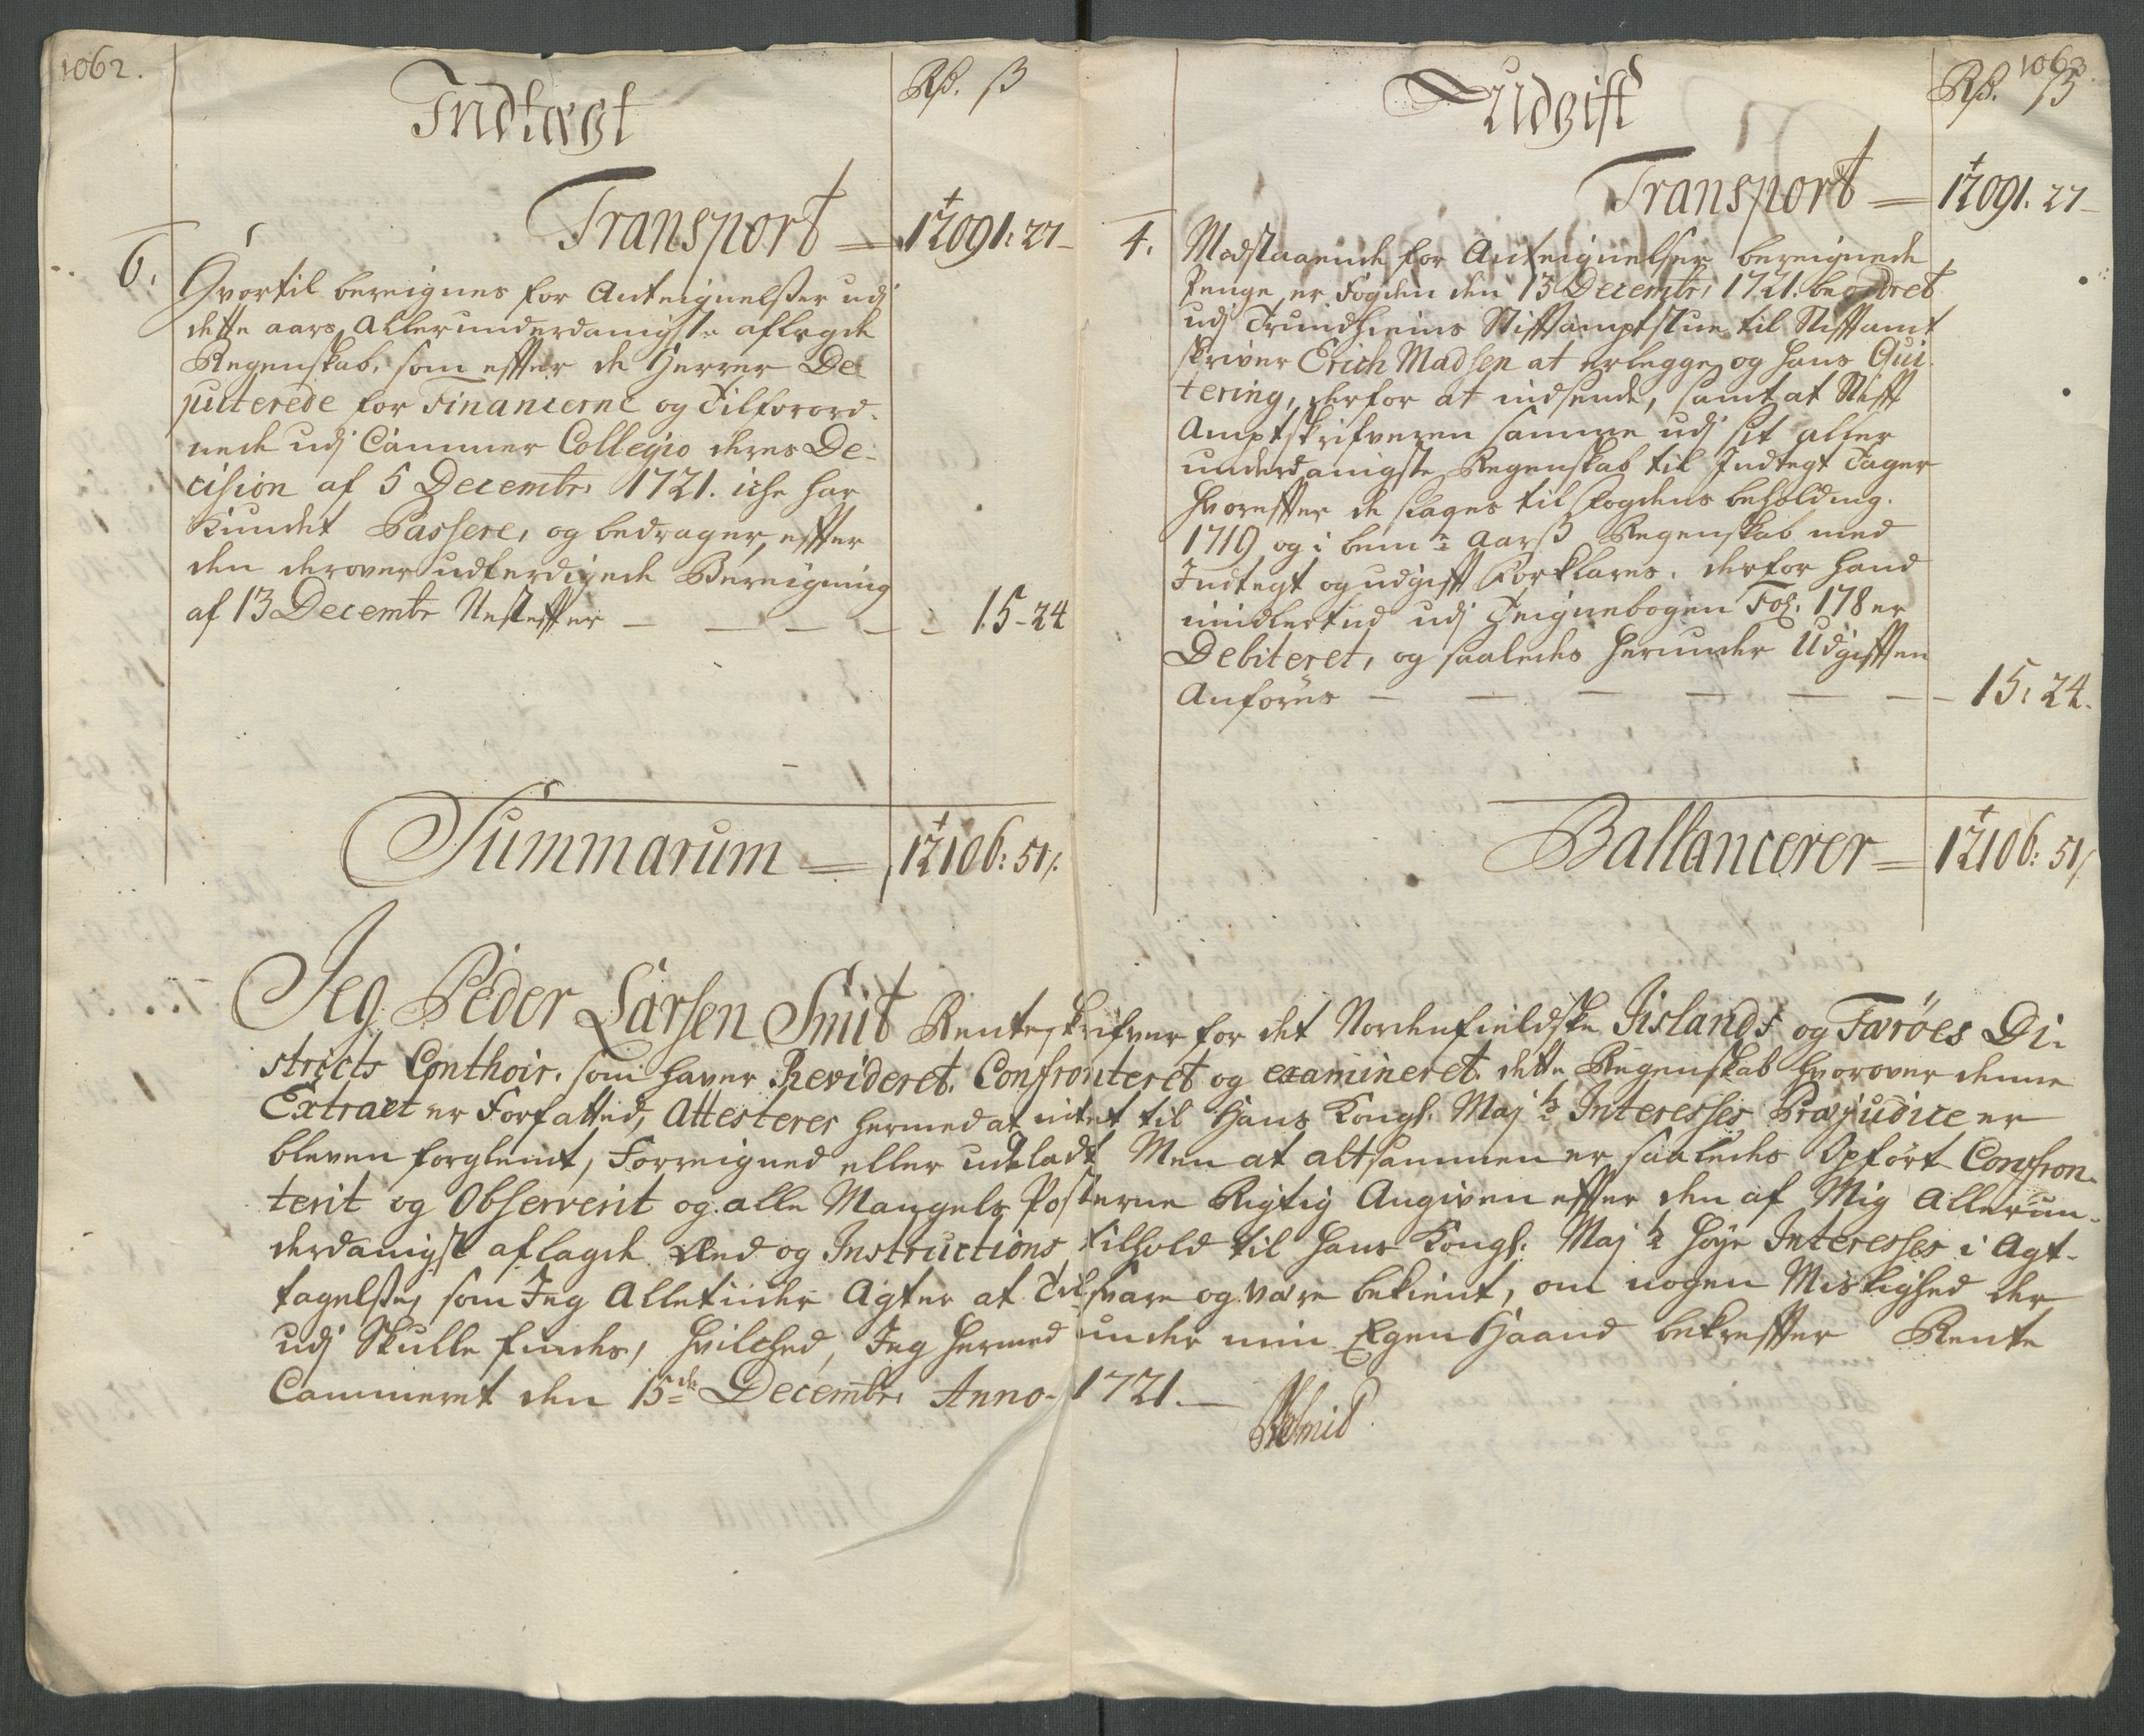 1062.
Indtægt
Rd. ß
Transport = 12091: 27
6.
Hvortil bereignes for Anteignelßer udj
dette aars Allerunderdanigste aflegde
Regenskab, som effter de Herrer De-
puterede for Financerne og Tilforord-
nede udj Cammer Collegio deres De-
cision af 5 Decembr: 1721. iche har
Kundet Passere, og bedrager, effter
den derover udferdigede Bereigning
af 13 Decembr Nesteffter - - - - - 15-24
Summarum = 12106: 51/.
1063.
Udgift
Rd. ß
Transport = 12091. 27
4.
Modstaaende for Anteignelser bereignede
Penge, er Fogden den 13 Decembr: 1721. beordret
udj Trundhiems Stifftamptstue til Stifftamt
skriver Erich Madsen at erlegge og hans Qui-
tering, derfor at indsende, samt at Stifft
Amptskrifveren samme udj sit aller
underdanigste Regenskab til Indtegt Tager
Hvoreffter de slages til Fogdens beholdng.
1719 og i bemte aarß Regenskab med
Indtegt og udgifft Forklares. derfor Hand
imidlertid udj Teignebogen Fol: 178 er
Debiteret, og saaledes herunder Udgifften
Anføres - - - - - - 15: 24.
Ballancerer = 12106: 51/
Jeg Peder Larsen Smit Renteskrifver for det Nordenfieldske Iislands og Færöes Di-
stricts Conthoir. som haver Revideret. Confronteret og examineret. dette Regenskab hvorover denne
Extract er Forfatted, Attesterer hermed at intet til Hans Kongl. Majts Interesses Præjudice er
bleven forglemt, Forreigned eller udeladt Men at altsammen er saaledes Opført Confron-
terit og Observerit og alle Mangels Posterne Rigtig Angiven effter den af Mig Allerun-
derdanigst aflagde Eed og Instructions tilhold til Hans Kongl: Majts Høye Interesses i Agt-
tagelße, som Jeg Alletinder Agter at Tilsvare og være bekient, om nogen Mislighed der
udj Skulle findes, Hvilched, Jeg hermed under min Egen Haand bekreffter Rente
Cammeret den 15de Decembr: Anno- 1721.
PLSmit